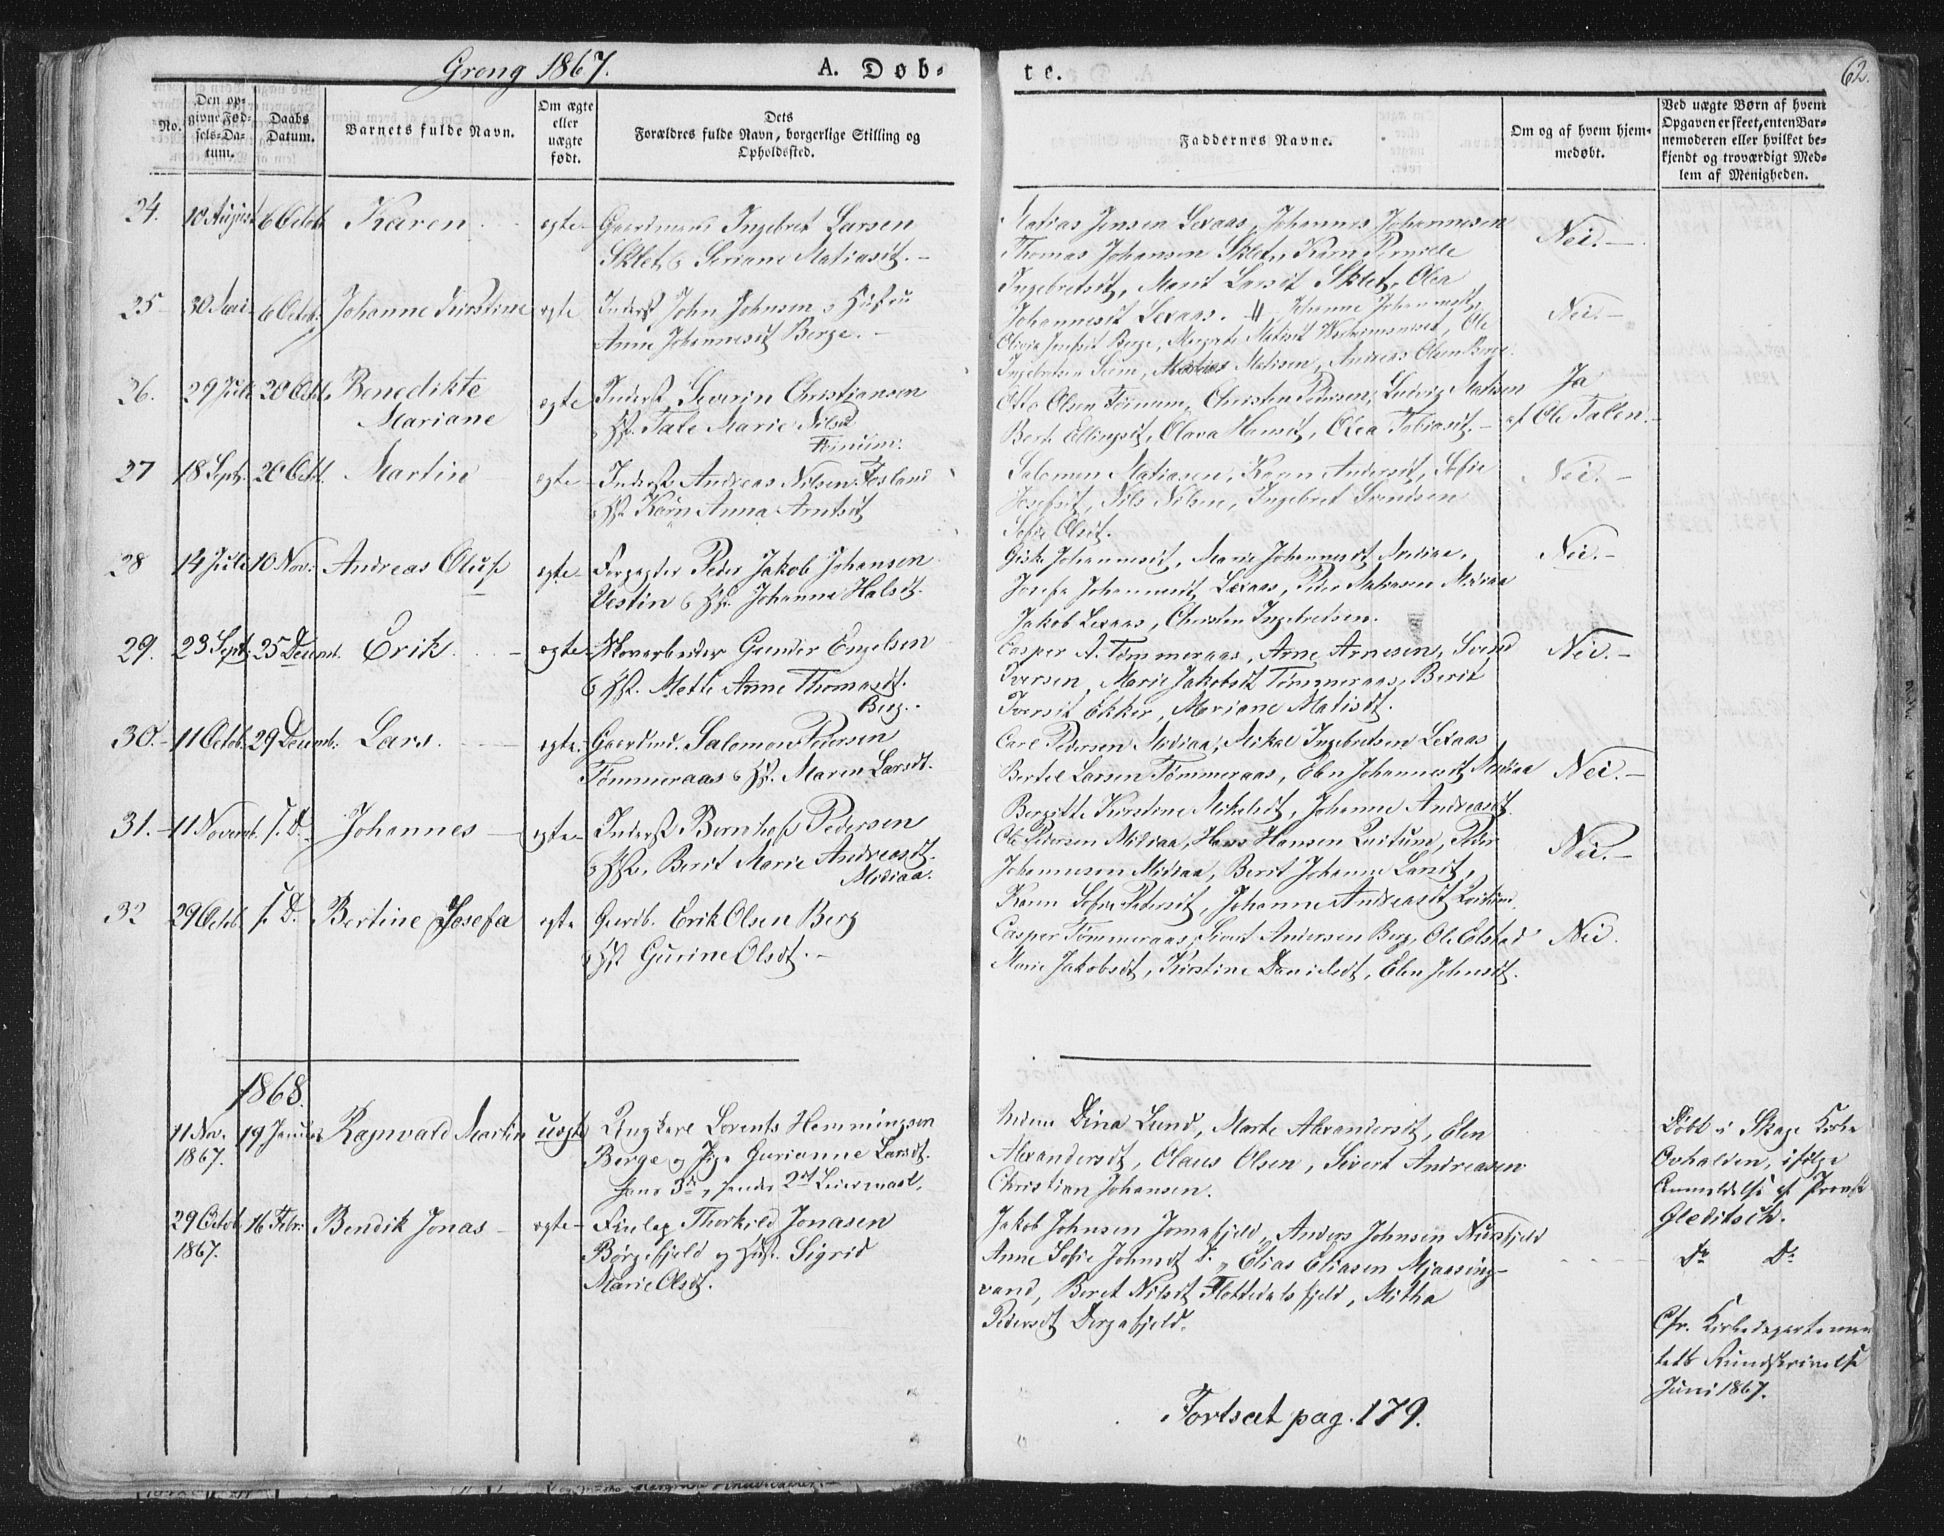 Grong 1867.
A. Døb-
te.
62.
No.
Den op-
givne Fød-
sels-Da-
tum.
Daabs
Datum.
Barnets fulde Navn.
Om ægte
eller
uægte
født.
Dets
Forældres fulde Navn, borgerlige Stilling og
Opholdssted.
Faddernes Navne.
Om og af hvem hjem-
medøbt.
Ved uægte Børn af hvem
Opgaven er skeet, enten Bar-
nemoderen eller hvilket be-
kjendt og troværdigt Med-
lem af Menigheden.
24. 10 August 6 Octob. Karen egte Gaardmand Ingebret Larsen
Sklet & Seriane Matiasdt.
Matias Jensen Lexaas, Johannes Johannesen
Thomas Johansen Sklet, Karen Pernille
Ingebretsdt, Marit Larsdt Sklet, Olea
Johannesdt Lexaas.
Nei.
25 30 6 Octob. Johanne Kirstine egte Inderst John Johnsen & Hustru
Anne Johannesdt Berge.
Johanne Johannesdt,
Berge, Margrete Matisdt, Ole
Ingebretsen Seem, Matias Matisen, Andreas Olsen Berge.
Nei.
26. 29 Juli 20 Octb. Benedikte
Mariane
egte Inderst Severin Christiansen
& Hst. Tale Marie Nilsd
Otto Olsen, Christen Pedersen, Ludvig Matisen
Berit Ellingsdt, Olava Hansdt, Olea Tobiasdt.
Ja
af Ole Talen.
27 18 Septr. 20 Octb. Martin egte Inderst Andreas Nilsen Fosland
& Hst. Karn Anna Arntsdt
Salomon Matiasen, Karen Andersdt, Sofie
Josefsdt, Nils Nilsen, Ingebret Svendsen
Sofie Olsdt.
Nei.
28 14 Juli 10 Nov. Andreas Oluf egte Forpagter Peder Jakob Johansen
Vestin & Hst. Johanna Halsdt.
Johannesdt, Marie Johannesdt Mediaa,
Josefa Johannesdt Lexaas, Peder Matiasen Mediaa
Jakob Lexaas, Christen Ingebretsen.
Nei.
29. 23 Sept. 25 Decemb. Erik. egte Gunder Engelsen
& Hst. Mette Anne Thomasdt.
Berg.
Casper A. Tømmeraas, Arne Arnesen, Svend
Iversen, Marie Jakobsdt Tømmeraas, Berit
Iversdt Ekker, Mariane Matisdt.
Nei.
30. 11 Octob. 29 Decemb. Lars. egte. Gaardmd. Salomon Petersen
Tømmeraas & Hst. Maren Larsdt.
Carl Pedersen Mediaa, Mikal Ingebretsen Lexaas
Bertel Larsen Tømmeraas, Elen Johannesdt Mediaa
Bergitte Kirstine Mikalsdt, Johanne Andreasdt
Nei.
31. 11 Novemb. s. D. Johannes egte Inderst Bernhof Pedersen
& Hst. Berit Marie Andreasdt.
Mediaa.
Ole Pedersen Mediaa, Hans Hansen, Peder
Johannesen Mediaa, Berit Johanna Larsdt,
Karen Sofie Pedersdt, Johanne Andreasdt
Nei.
32 29 Octob. s. D. Bertine Josefa egte Erik Olsen Berg
& Hst Gurine Olsdt.
Casper Tømmeraas, Sivert Andersen Berg, Ole Elstad
Marie Jakobsdt, Kirstine Danielsdt, Elen Johnsdt.
Nei.
1868.
11 Nov.
1867.
19 Januar Ragnvald Martin uegte Ungkarl Lorents Hemmingsen
Berge og Pige Gurianne Larsdt.
hans 3de, hendes 2det Leiermaal.
Dina Lund, Marte Alexandersdt, Elen
Alexandersdt, Olaus Olsen, Sivert Andreasen
Christian Johansen.
Døbt i Skage Kirke
Overhalden, ifølge
Anmeldelse af Provst
Gleditsch.
29 Octob
1867.
16 Febr. Bendik Jonas egte Finlap Thorkild Jonasen
Børgefjeld og Hust. Sigrid
Marie Olsdt.
Jakob Johnsen Jomafjeld, Anders Johnsen
Anne Sofie Johnsdt D., Elias Eliasen Mjaasing-
vand, Beret Nilsdt, Mitha
Pedersdt
Do Do
Cfr. Kirkedepartemen
tets Rundskrivelse
Juni 1867.
Fortsat pag. 179.